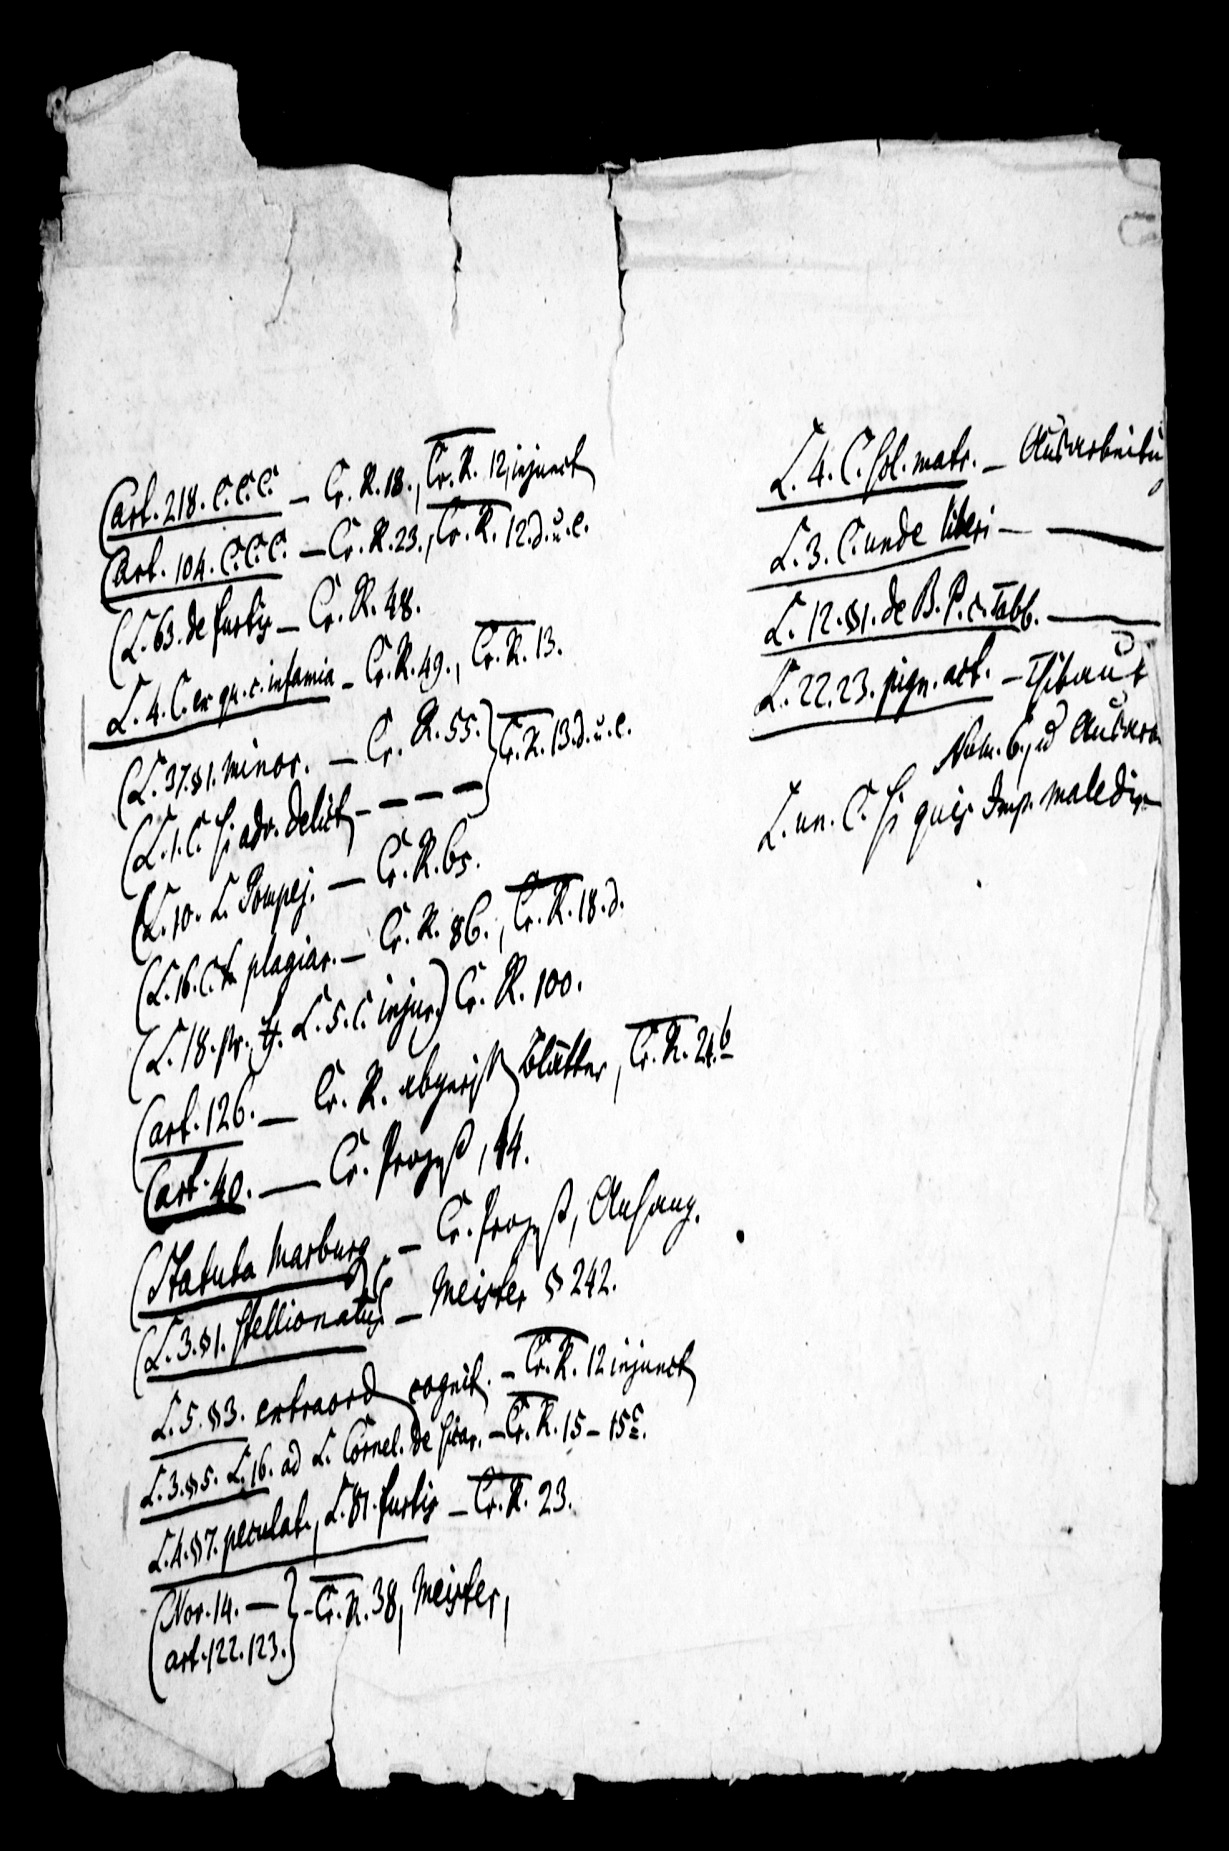 (art. 218. C.C.C. — Cr. R. 18., Cr. R. 12, injunct
(art. 104. C.C.C. — Cr. R. 23., Cr. R. 12. d. u. e.
(L. 63. de furtis — Cr. R. 48.
L. 4. C. ex qu. c. infamia — Cr. R. 49., Cr. R. 13.
(L. 37. §1. minor. — Cr. R. 55. } Cr. R. 13. d. u. e.
(L. 1. C. si adv. delict — — — —
(L. 10. L. Pompej. — Cr. R. 65.
(L. 16. C. plagiar. — Cr. R. 86., Cr. R. 18. d.
(L. 18. pr., L. 5. C. injur.) Cr. R. 100.
(art. 126. — Cr. R. Blätter, Cr. R. 24. b
(art. 40. — Cr. Prozeß, 14.
(Statuta Marburg. — Cr. Prozeß, Anhang.
(L. 3. §1. stellionatus — Meister § 242.
L. 5. §3. extraord. cognit. — Cr. R. 12 injunct
L. 3. §5. L. 16. ad L. Cornel. de sicar. — Cr. R. 15 — 15 c.
L. 4. §7. peculat., L. 81. furtis — Cr. R. 23.
(Nov. 14. — } — Cr. R. 38, Meister,
(art. 122. 123. }
L. 4. C. sol. matr. — Ausarbeitu
L. 3. C. unde liberi — —
L. 12. §1. de B. P. c. Tabb. —
L. 22. 23. pign. act. — Thibaut
Num. 6, u Ausar
L. un. C. Si quis Imp. maledix